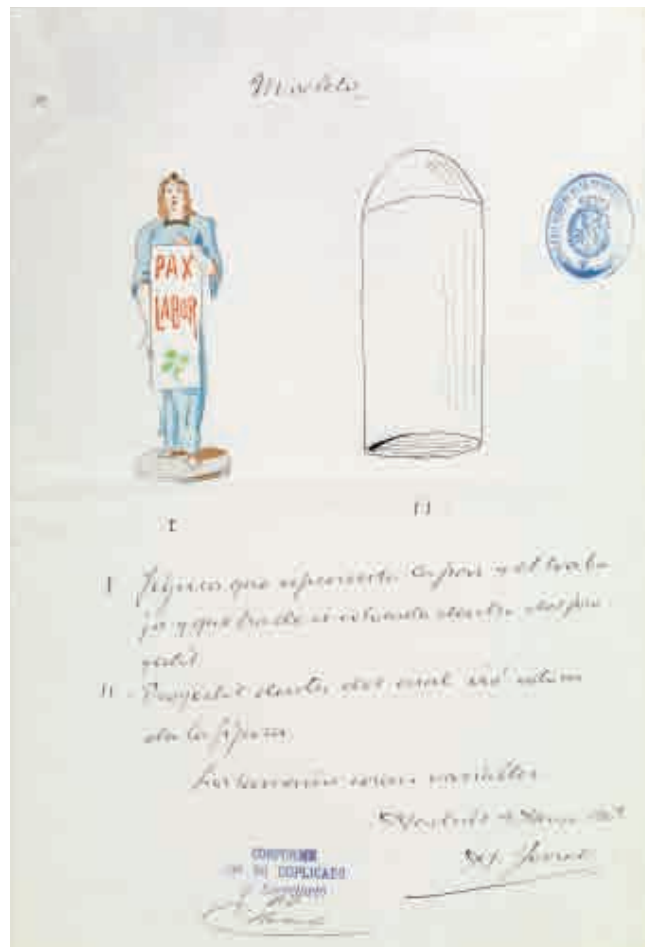 Modelo
PAX
LABOR
I
II
I Figura que representa la paz y el traba
jo y que ha de ir colocada dentro del pro
yectil
II - Proyectil dentro del cual irá coloca
da la figura.
Los tamaños serán variables
Madrid
CONFORME
DUPLICADO